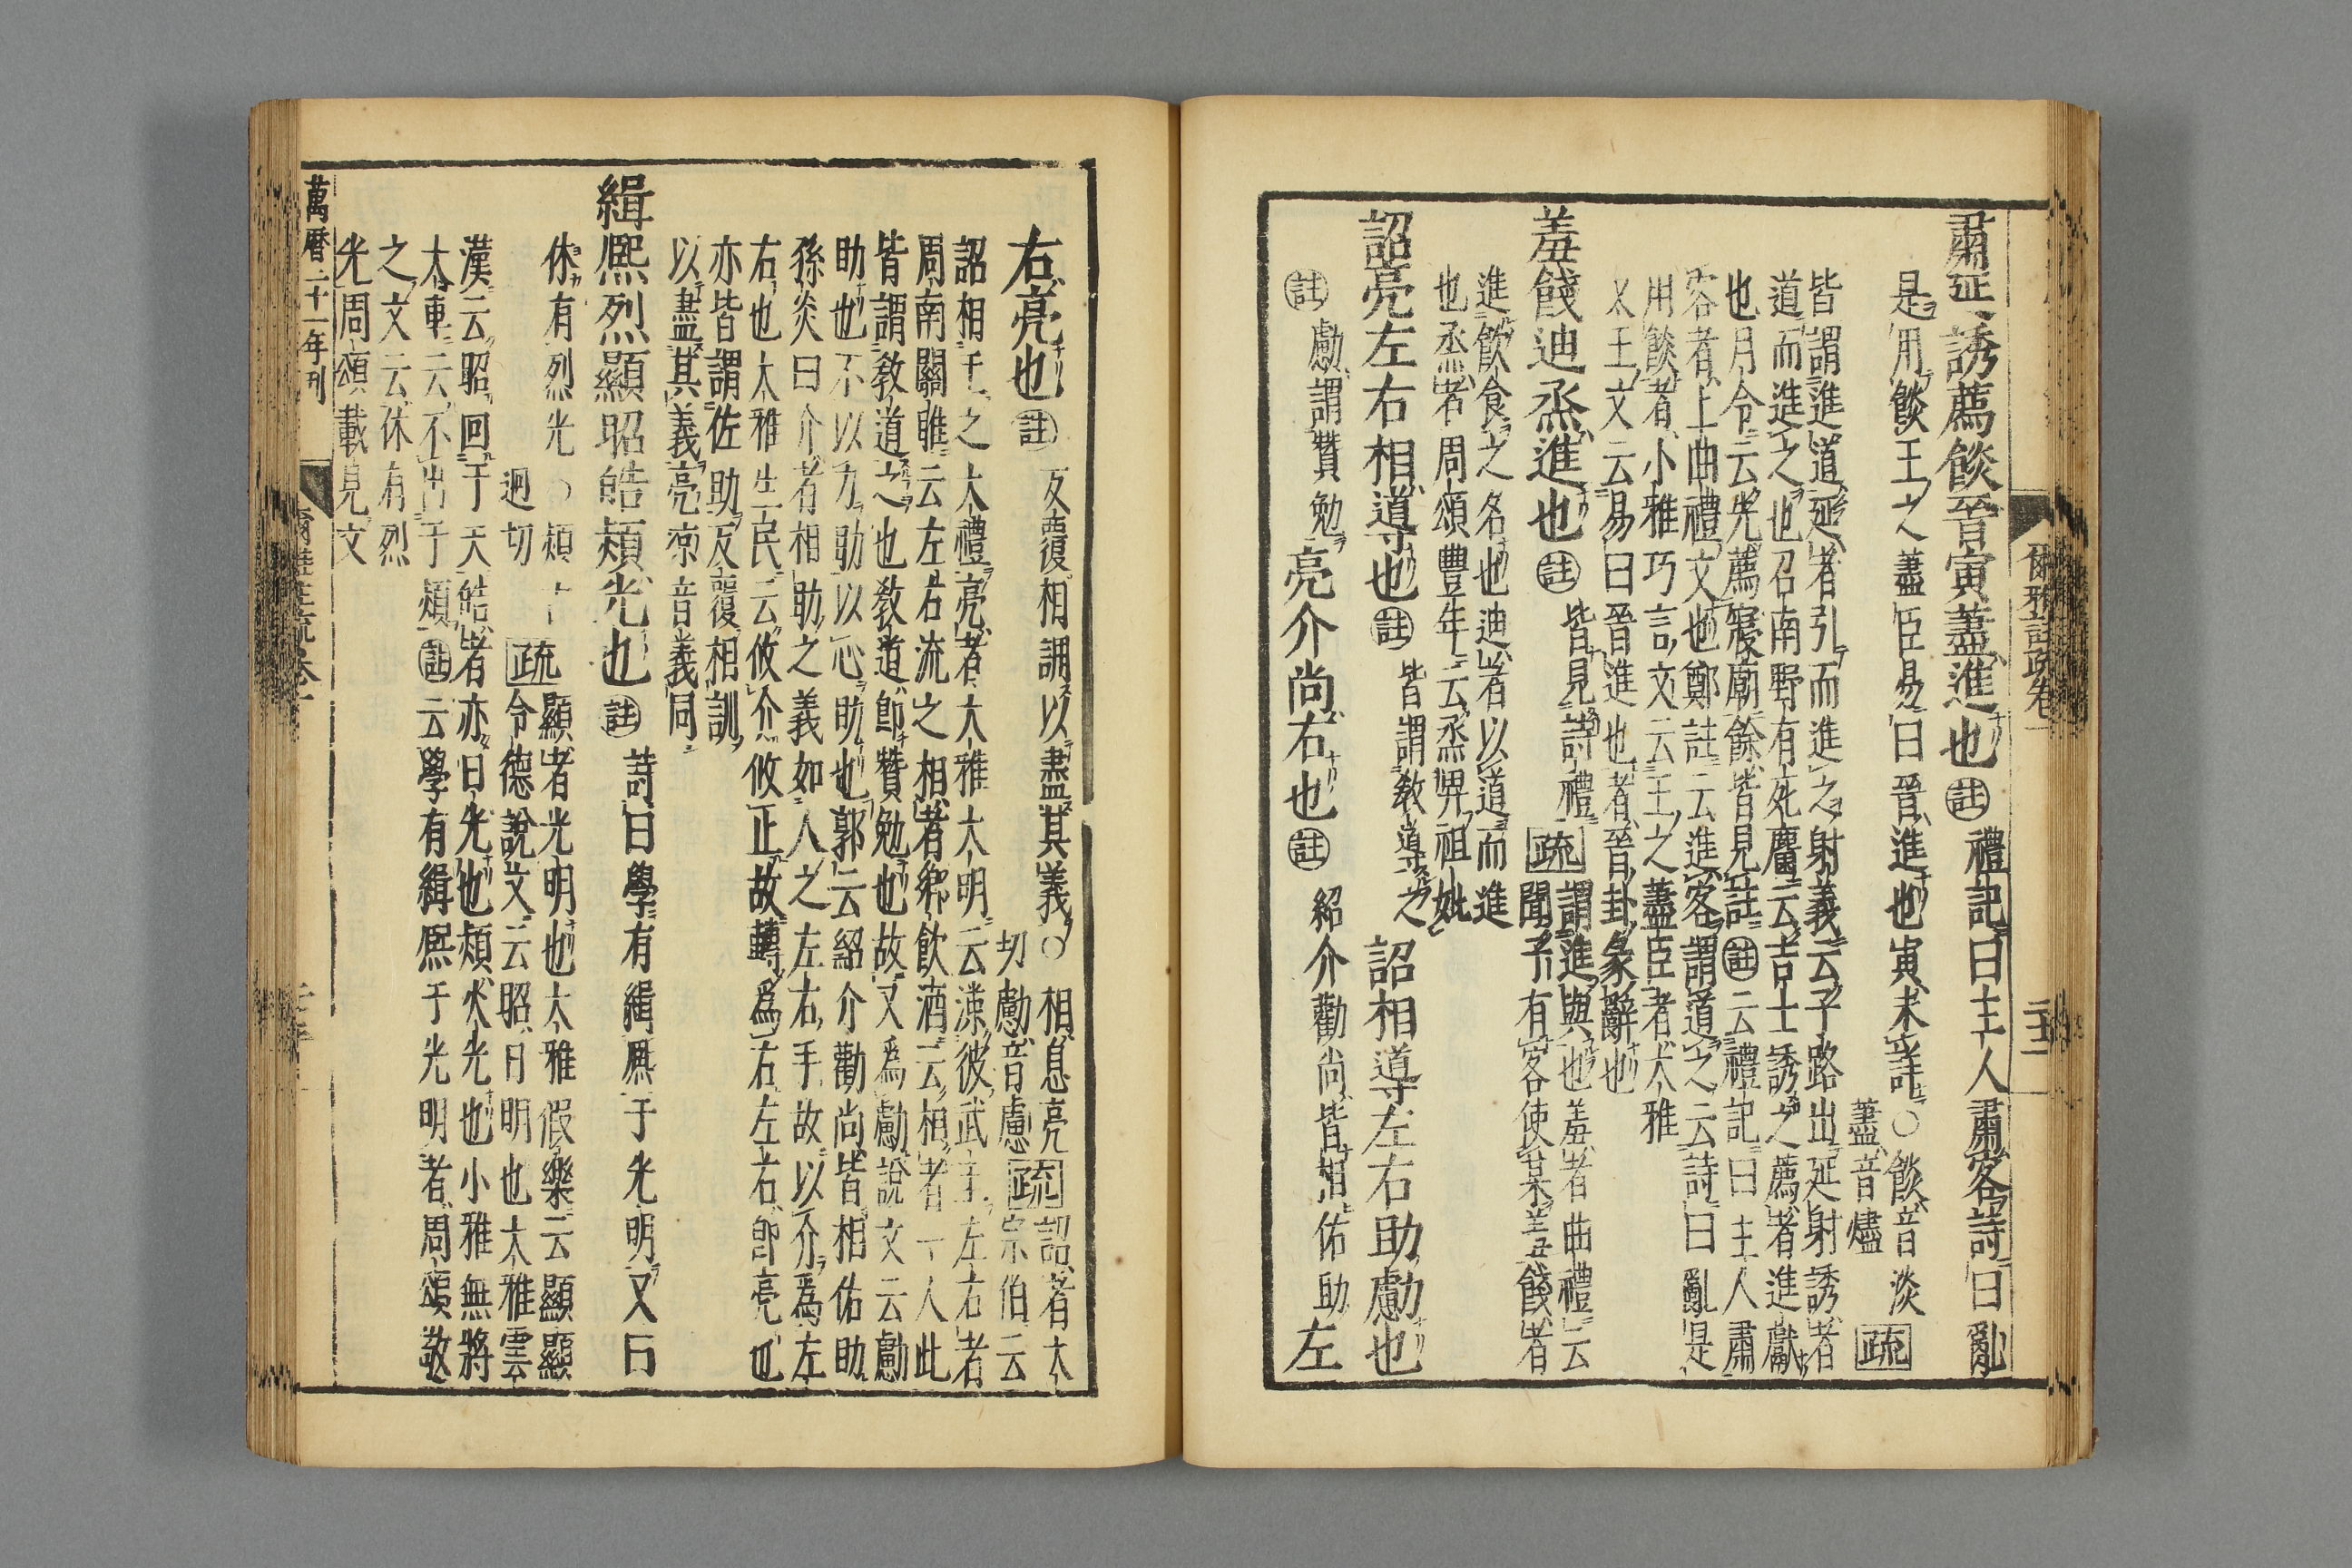 爾雅註疏卷一
肅延誘薦餤晉寅藎進也 註 禮記曰主人肅客詩曰亂
是用餤王之藎臣易曰晉進也寅未詳○餤音淡
藎音燼 疏
皆謂進道延者引而進之射義云子路出延射誘者
道而進之也召南野有死麕云吉士誘之薦者進獻
也月令云先薦寢廟餘皆見註 註云禮記曰主人肅
客者上曲禮文也鄭註云進客謂道之云詩曰亂是
用餤者小雅巧言文云王之藎臣者大雅
文王文云易曰晉進也者晉卦彖辭也
羞餞迪烝進也 註 皆見詩禮 疏 謂進與也羞者曲禮云
聞子有客使某羞餞者
進飲食之名也迪者以道而進
也烝者周頌豐年云烝畀祖妣
詔亮左右相導也 註 皆謂教導之 詔相導左右助勴也
註 勴謂贊勉 亮介尚右也 註 紹介勸尚皆相佑助 左
右亮也 註 反覆相訓以盡其義○相息亮
切勴音慮 疏 詔者太
宗伯云
詔相王之大禮亮者大雅大明云涼彼武王左右者
周南關雎云左右流之相者鄉飲酒云相者一人此
皆謂教道之也教道即贊勉也故又為勴說文云勴
助也不以力助以心助也郭云紹介勸尚皆相佑助
孫炎曰介者相助之義如人之左右手故以介為左
右也大雅生民云攸介攸止故轉為右左右即亮也
亦皆謂佐助反覆相訓
以盡其義亮涼音義同
緝熙烈顯昭皓熲光也 註 詩曰學有緝熙于光明又曰
休有烈光○熲
迥切 疏 顯者光明也大雅假樂云顯顯
令德說文云昭日明也大雅雲
漢云昭回于天皓者亦日光也熲火光也小雅無將
大車云不出于熲 註云學有緝熙于光明者周頌敬
之文云休有烈
光周頌載見文
萬曆二十一年刊
爾雅註疏卷一